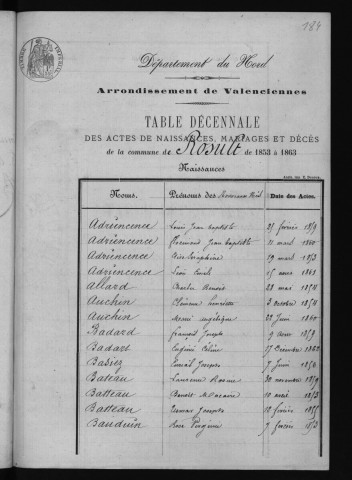 184
Département du Nord
Arrondissement de Valenciennes
TABLE DÉCENNALE
DES ACTES DE NAISSANCES, MARIAGES ET DÉCÈS
de la commune de Rosult de 1853 à 1863
Naissances
Noms. Prénoms des Nouveaux Nés Date des Actes.
Adriencence Louis Jean baptiste février 1859
Adriencence Florimond Jean baptiste 11 mars 1860
Adriencence Séraphine 19 mars 1853
Adriencence Léon 15 1861
Allard Charles Benoit 28 mai 1854
Auchin Clémence Henriette 3 octobre 1854
Auchin Marie angélique 22 Juin 1860
Badard françois Joseph 9 1859
Badart Eugénie Céline 17 Décembre 1862
Basiez Joseph 7 Juin 1856
Bateau Laurence Rosine 30 novembre 1859
Batteau Benoit Macaire 10 avril 1853
Batteau Joseph 12 février 1855
Bauduin Rose Virginie 9 février 1853